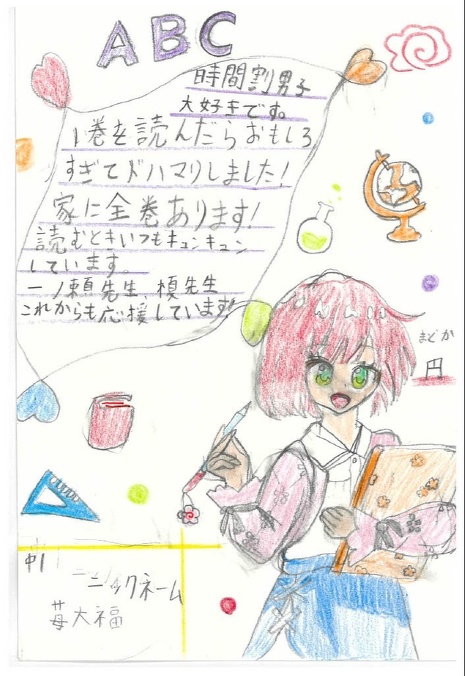 ABC
時間割男子
大好きです。
1巻を読んだらおもしろ
すぎてドハマりしました!
家に全巻あります!
読むときいつもキュンキュン
しています。
一ノ瀬先生、榎先生
これからも応援しています!
まどか
円
中1
ニックネーム
苺大福